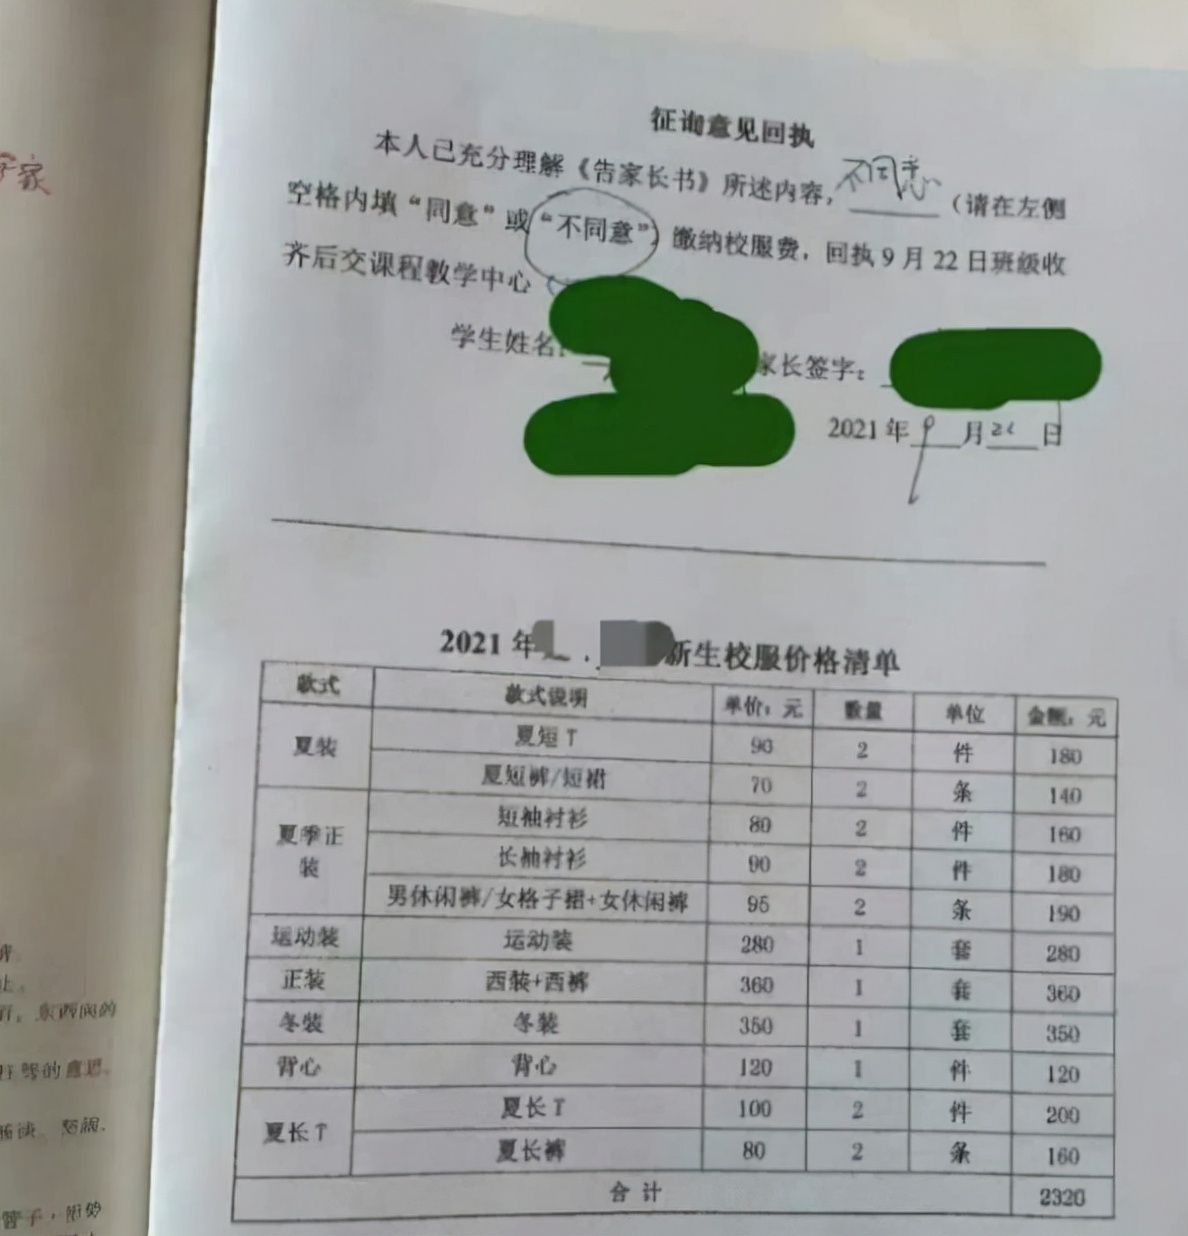 学家
征询意见回执
本人已充分理解《告家长书》所述内容，不同意（请在左侧
空格内填“同意”或“不同意”）缴纳校服费，回执9月22日班级收
齐后交课程教学中心
学生姓名： 家长签字：
2021年9月 日
2021年 新生校服价格清单
款式 款式说明 单价：元 数量 单位 金额：元
夏装 夏短T 90 2 件 180
夏短裤/短裙 70 2 条 140
夏季正装 短袖衬衫 80 2 件 160
长袖衬衫 90 2 件 180
男休闲裤/女格子裙+女休闲裤 95 2 条 190
运动装 运动装 280 1 套 280
正装 西装+西裤 360 1 套 360
冬装 冬装 350 1 套 350
背心 背心 120 1 件 120
夏长T 夏长T 100 2 件 200
夏长裤 80 2 条 160
合计 2320